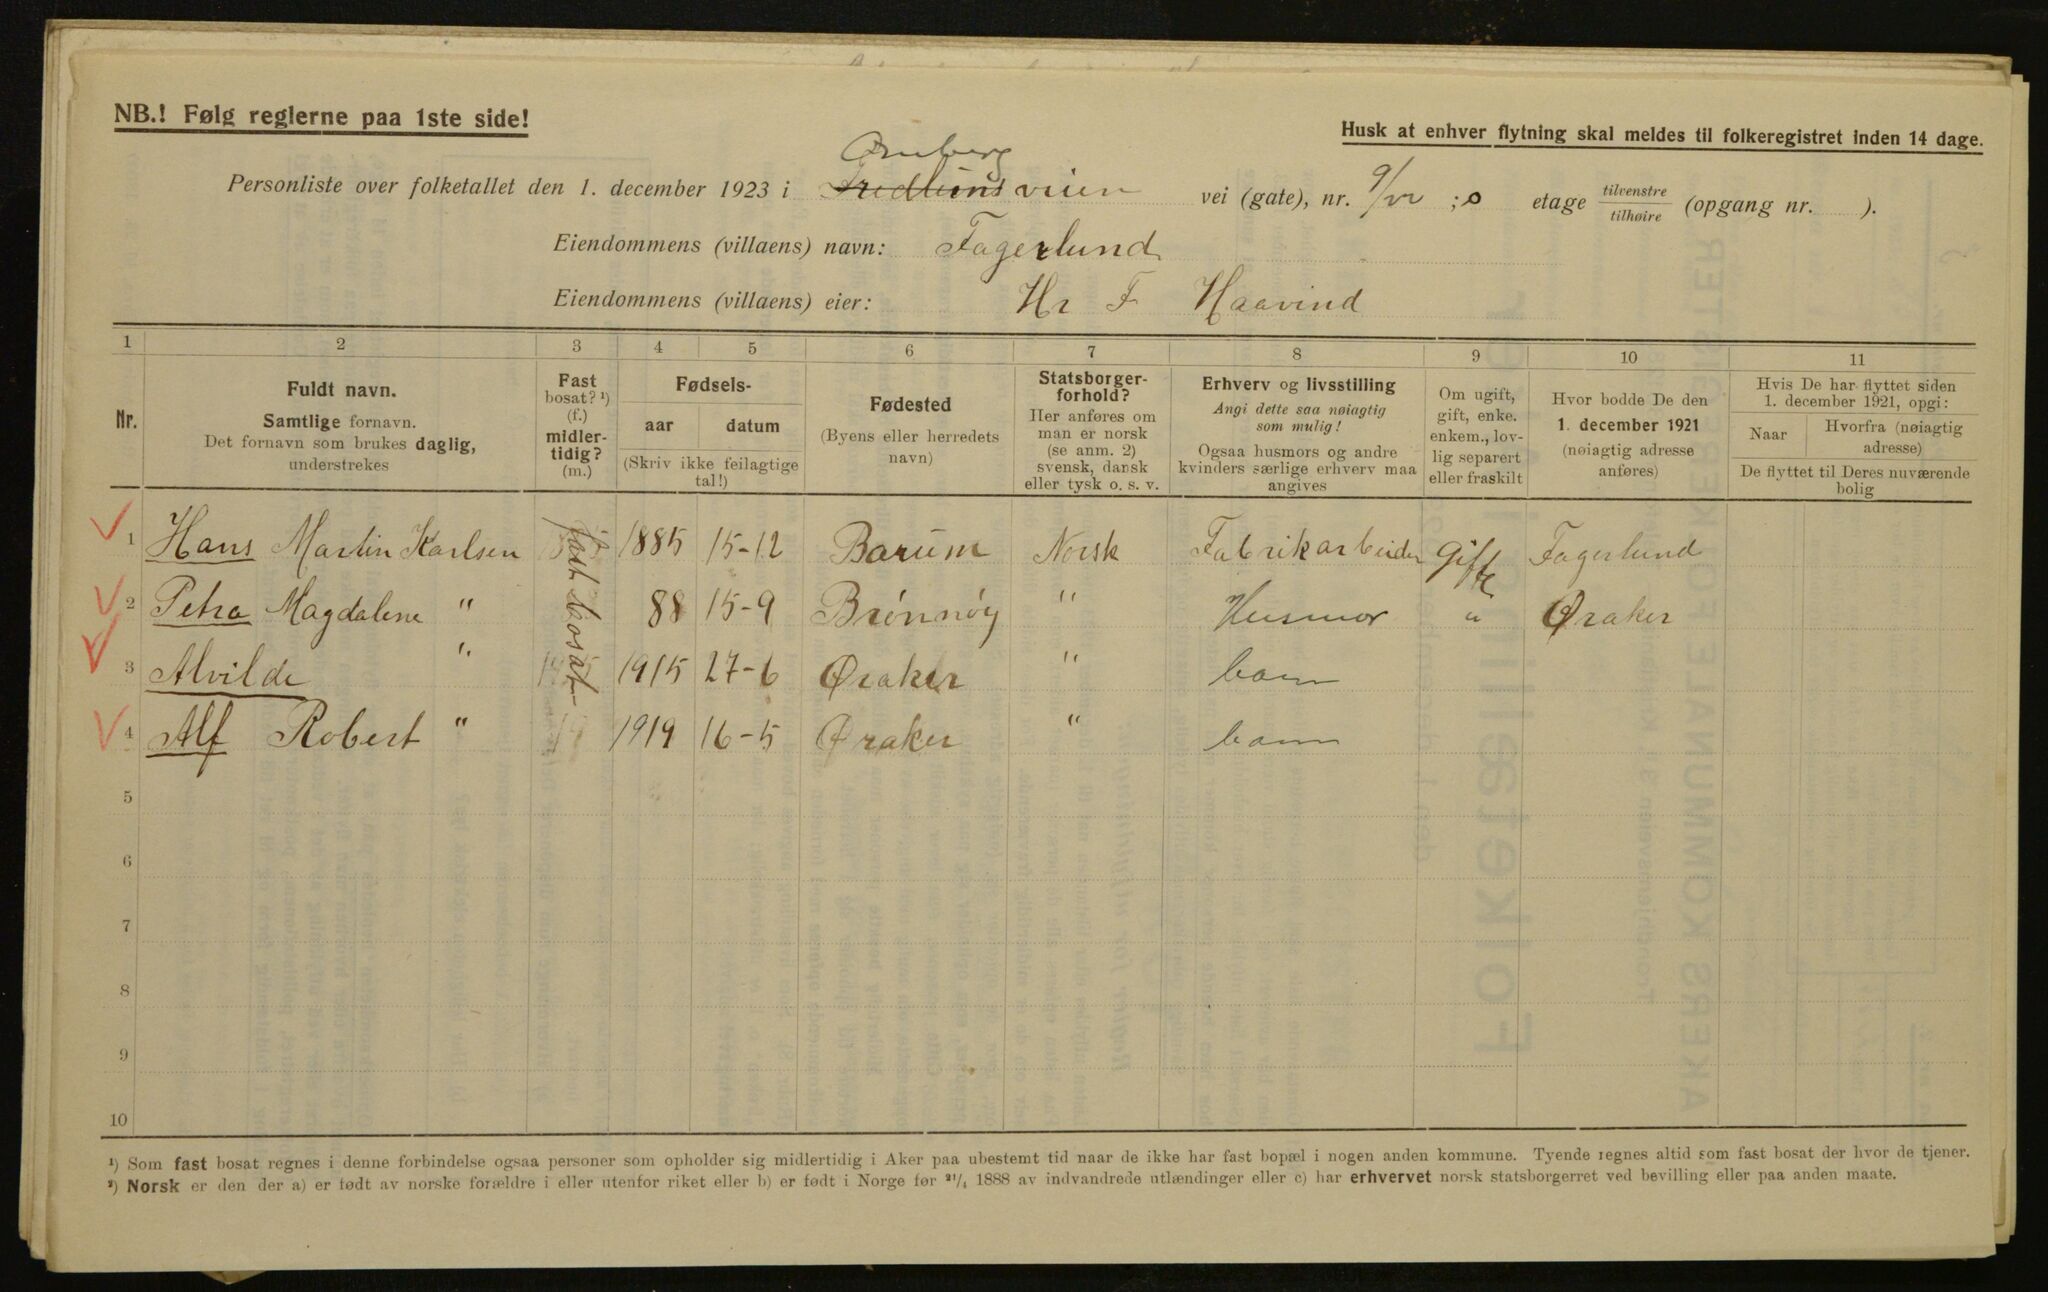 NB.! Følg reglerne paa 1ste side!
Husk at enhver flytning skal meldes til folkeregistret inden 14 dage.
Personliste over folketallet den 1. december 1923 i Fredlunsveien vei (gate), nr. 9/22 ; 0 etage tilvenstre tilhøire (opgang nr. ).
Eiendommens (villaens) navn: Fagerlund
Eiendommens (villaens) eier: Hr F Haavind
1 2 3 4 5 6 7 8 9 10 11
Nr.
Fuldt navn.
Samtlige fornavn.
Det fornavn som brukes daglig,
understrekes
Fast
bosat? ¹)
(f.)
midler-
tidig?
(m.)
Fødsels-
aar datum
(Skriv ikke feilagtige
tal!)
Fødested
(Byens eller herredets
navn)
Statsborger-
forhold?
Her anføres om
man er norsk
(se anm. 2)
svensk, dansk
eller tysk o. s. v.
Erhverv og livsstilling
Angi dette saa nøiagtig
som mulig!
Ogsaa husmors og andre
kvinders særlige erhverv maa
angives
Om ugift,
gift, enke.
enkem., lov-
lig separert
eller fraskilt
Hvor bodde De den
1. december 1921
(nøiagtig adresse
anføres)
Hvis De har flyttet siden
1. december 1921, opgi:
Naar
Hvorfra (nøiagtig
adresse)
De flyttet til Deres nuværende
bolig
fast bosat
1 Hans Martin Karlsen 1885 15-12 Barum Norsk Fabrikarbeider Gifte Fagerlund
2 Petra Magdalene " 88 15-9 Brönnöy " Husmor " Øraker
3 Alvilde " 1915 27-6 Øraker " barn
4 Alf Robert " 1919 16-5 Øraker " barn
5
6
7
8
9
10
¹) Som fast bosat regnes i denne forbindelse ogsaa personer som opholder sig midlertidig i Aker paa ubestemt tid naar de ikke har fast bopæl i nogen anden kommune. Tyende regnes altid som fast bosat der hvor de tjener.
²) Norsk er den der a) er født av norske forældre i eller utenfor riket eller b) er født i Norge før ²¹/₄ 1888 av indvandrede utlændinger eller c) har erhvervet norsk statsborgerret ved bevilling eller paa anden maate.